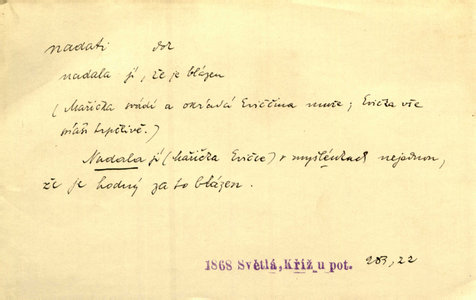 nadati dok
nadala jí, že je blázen
(Mařička svádí a okrádá Eviččina muže; Evička vše
snáší trpělivě.)
Nadala jí (Mařička Evičce) v myšlénkách nejednou,
že je hodný za to blázen.
1868 Světlá, Kříž u pot. 203,22